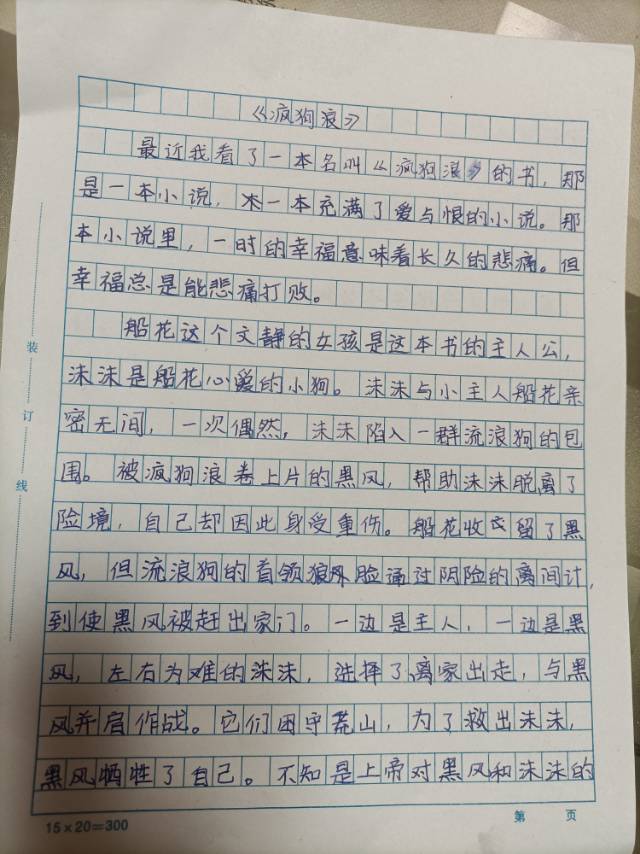 《疯狗浪》
最近我看了一本名叫《疯狗浪》的书，那
是一本小说，一本充满了爱与恨的小说。那
本小说里，一时的幸福意味着长久的悲痛。但
幸福总是能悲痛打败。
船花这个文静的女孩是这本书的主人公，
沫沫是船花心爱的小狗。沫沫与小主人船花亲
密无间，一次偶然，沫沫陷入一群流浪狗的包
围。被疯狗浪卷上片的黑风，帮助沫沫脱离了
险境，自己却因此身受重伤。船花收留了黑
风，但流浪狗的首领狼脸通过阴险的离间计，
到使黑风被赶出家门。一边是主人，一边是黑
风，左右为难的沫沫，选择了离家出走，与黑
风并肩作战。它们困守荒山，为了救出沫沫，
黑风牺牲了自己。不知是上帝对黑风和沫沫的
装
订
线
15×20=300
第 页